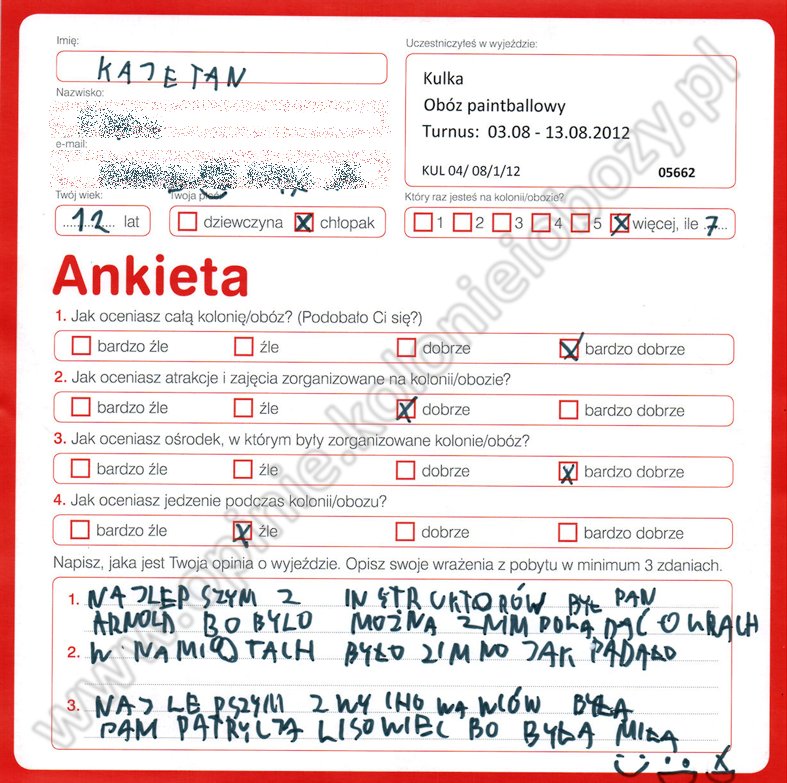 Imię:
KAJETAN
Uczestniczyłeś w wyjeździe:
Kulka
Obóz paintballowy
Turnus: 03.08 - 13.08.2012
KUL 04/ 08/1/12 05662
Nazwisko:
e-mail:
Twój wiek:
12 lat
Twoja płeć
dziewczyna X chłopak
Który raz jesteś na kolonii/obozie?
1 2 3 4 5 X więcej, ile 7
Ankieta
1. Jak oceniasz całą kolonię/obóz? (Podobało Ci się?)
bardzo źle źle dobrze X bardzo dobrze
2. Jak oceniasz atrakcje i zajęcia zorganizowane na kolonii/obozie?
bardzo źle źle X dobrze bardzo dobrze
3. Jak oceniasz ośrodek, w którym były zorganizowane kolonie/obóz?
bardzo źle źle dobrze X bardzo dobrze
4. Jak oceniasz jedzenie podczas kolonii/obozu?
bardzo źle X źle dobrze bardzo dobrze
Napisz, jaka jest Twoja opinia o wyjeździe. Opisz swoje wrażenia z pobytu w minimum 3 zdaniach.
1. NAJLEPSZYM Z INSTRUKTORÓW BYŁ PAN
ARNOLD BO BYLO MOŻNA Z NIM POGADAĆ O GRACH
2. W NAMIOTACH BYŁO ZIMNO JAK PADAŁO
3. NAJLEPSZYM Z WYCHOWAWCÓW BYŁA
PAM PATRYCJA LISOWIEC BO BYŁA MIŁA
www.opinie.kolonieiobozy.pl